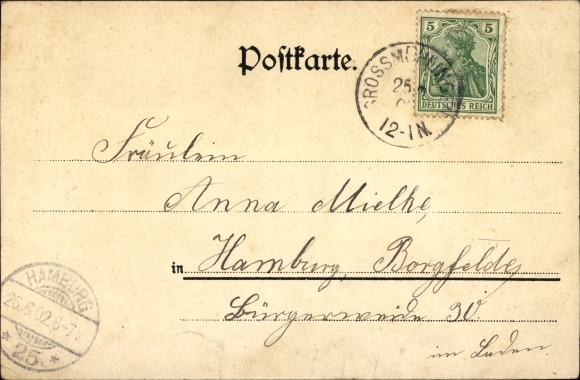 Postkarte.
5 5
DEUTSCHES REICH
25.
12-1N.
Fräulein
Anna Mielke,
in Hamburg, Borgfelde,
Bürgerweide
im Laden.
HAMBURG
25.6.02.6-7
* 25. *